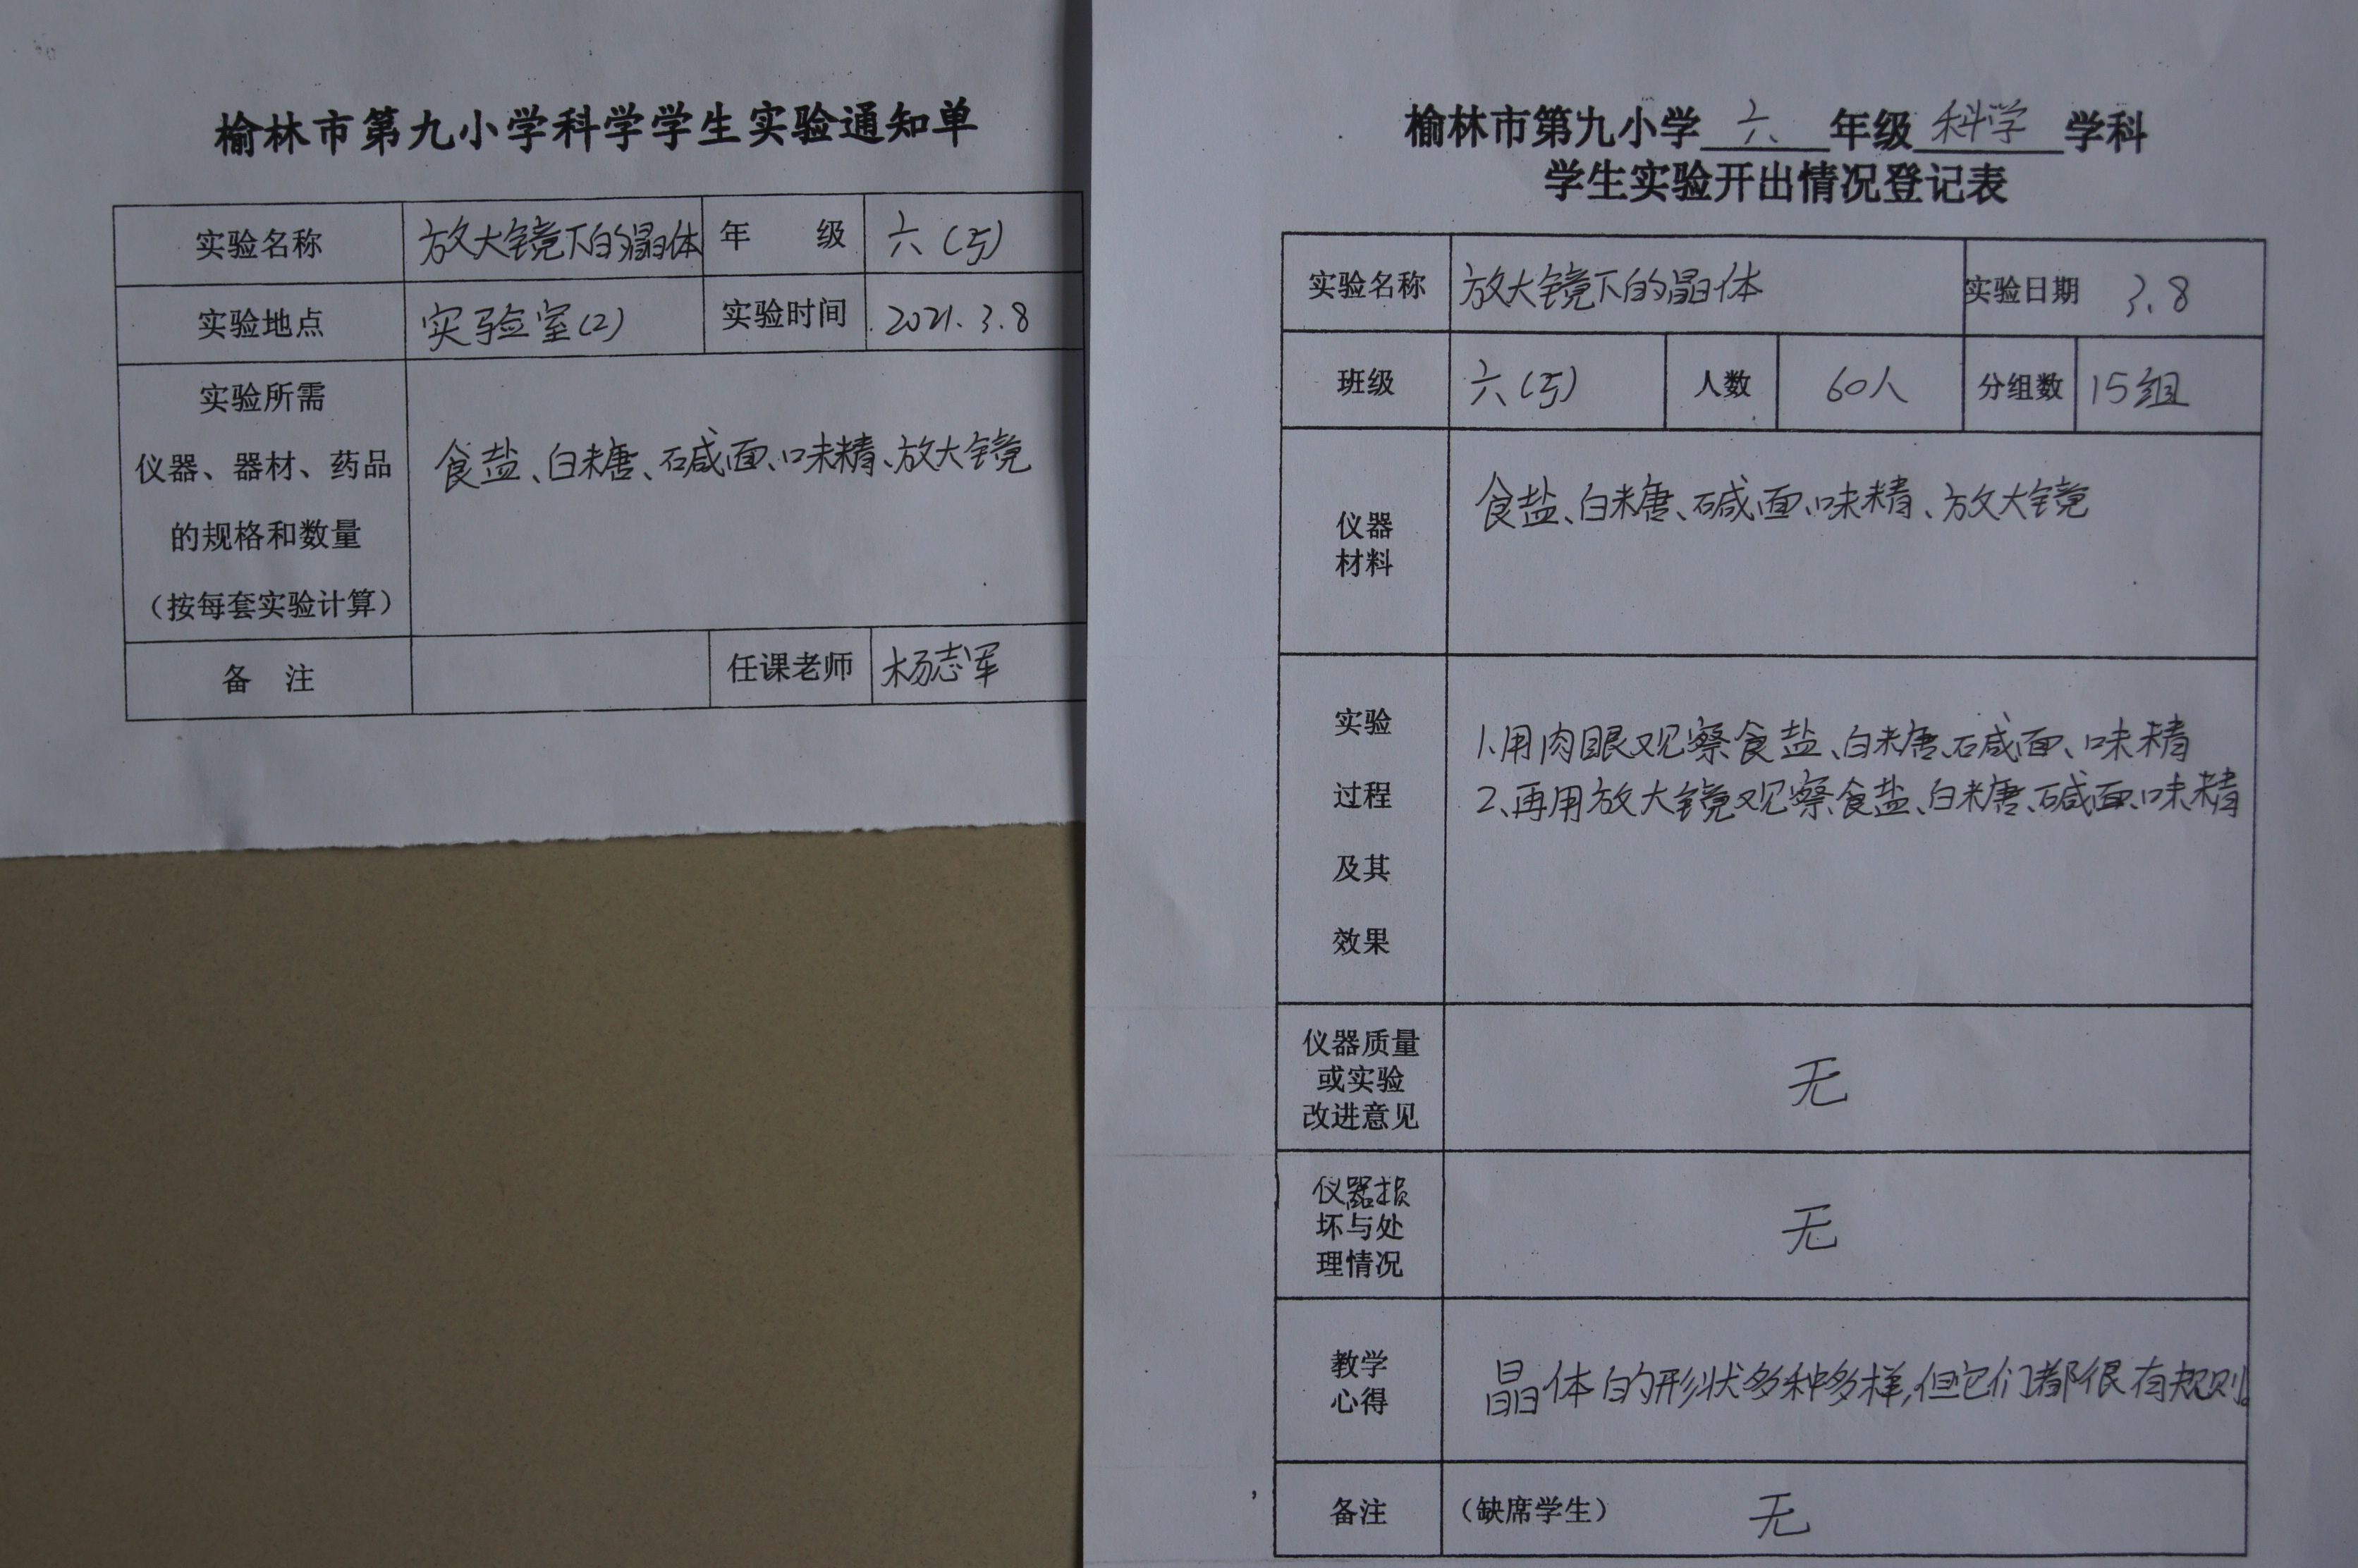 榆林市第九小学科学学生实验通知单
实验名称 放大镜下的晶体 年 级 六(5)
实验地点 实验室(2) 实验时间 2021.3.8
实验所需
仪器、器材、药品
的规格和数量
(按每套实验计算)
食盐、白糖、碱面、味精、放大镜
备 注 任课老师 杨志军
榆林市第九小学 六 年级 科学 学科
学生实验开出情况登记表
实验名称 放大镜下的晶体 实验日期 3.8
班级 六(5) 人数 60人 分组数 15组
仪器
材料
食盐、白糖、碱面、味精、放大镜
实验
过程
及其
效果
1、用肉眼观察食盐、白糖、碱面、味精
2、再用放大镜观察食盐、白糖、碱面、味精
仪器质量
或实验
改进意见
无
仪器损
坏与处
理情况
无
教学
心得
晶体的形状多种多样,但它们都很有规则。
备注 (缺席学生) 无